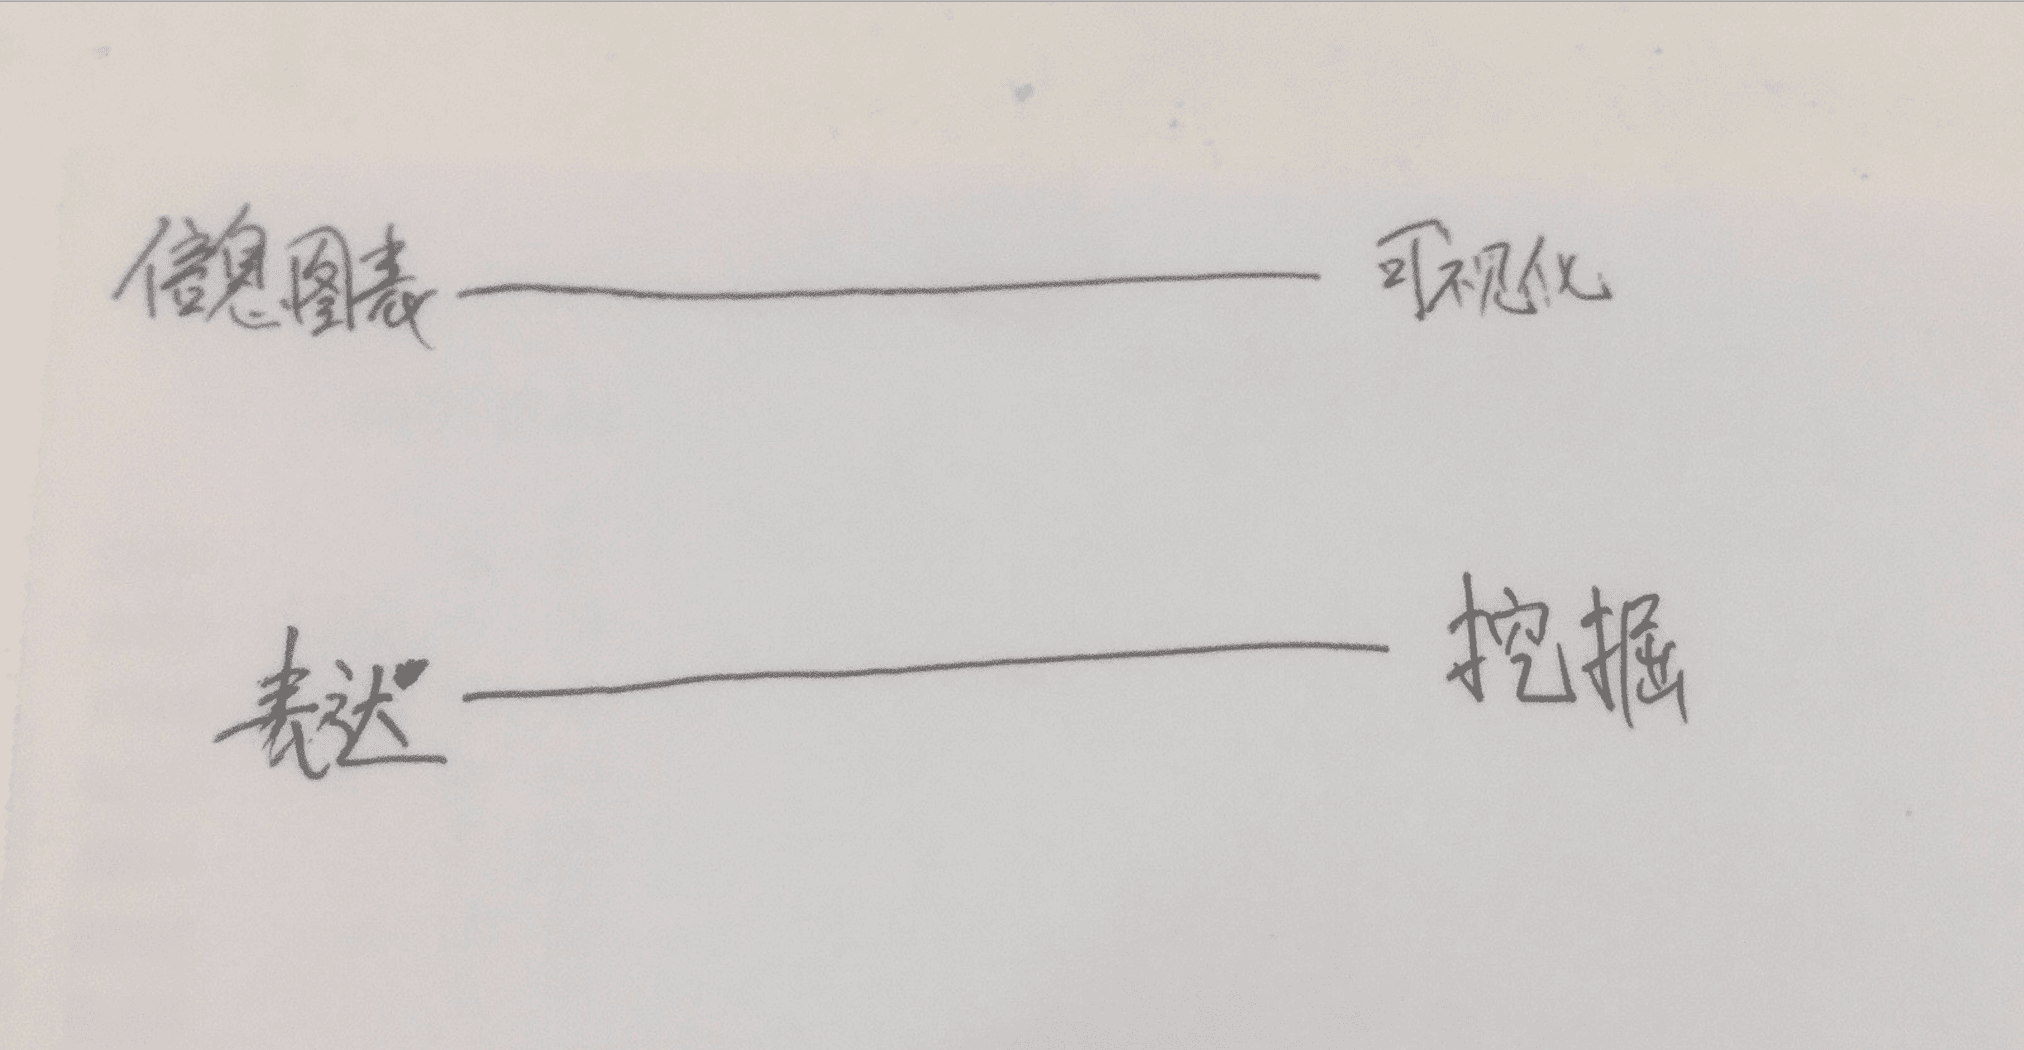 信息图表 可视化
表达 挖掘